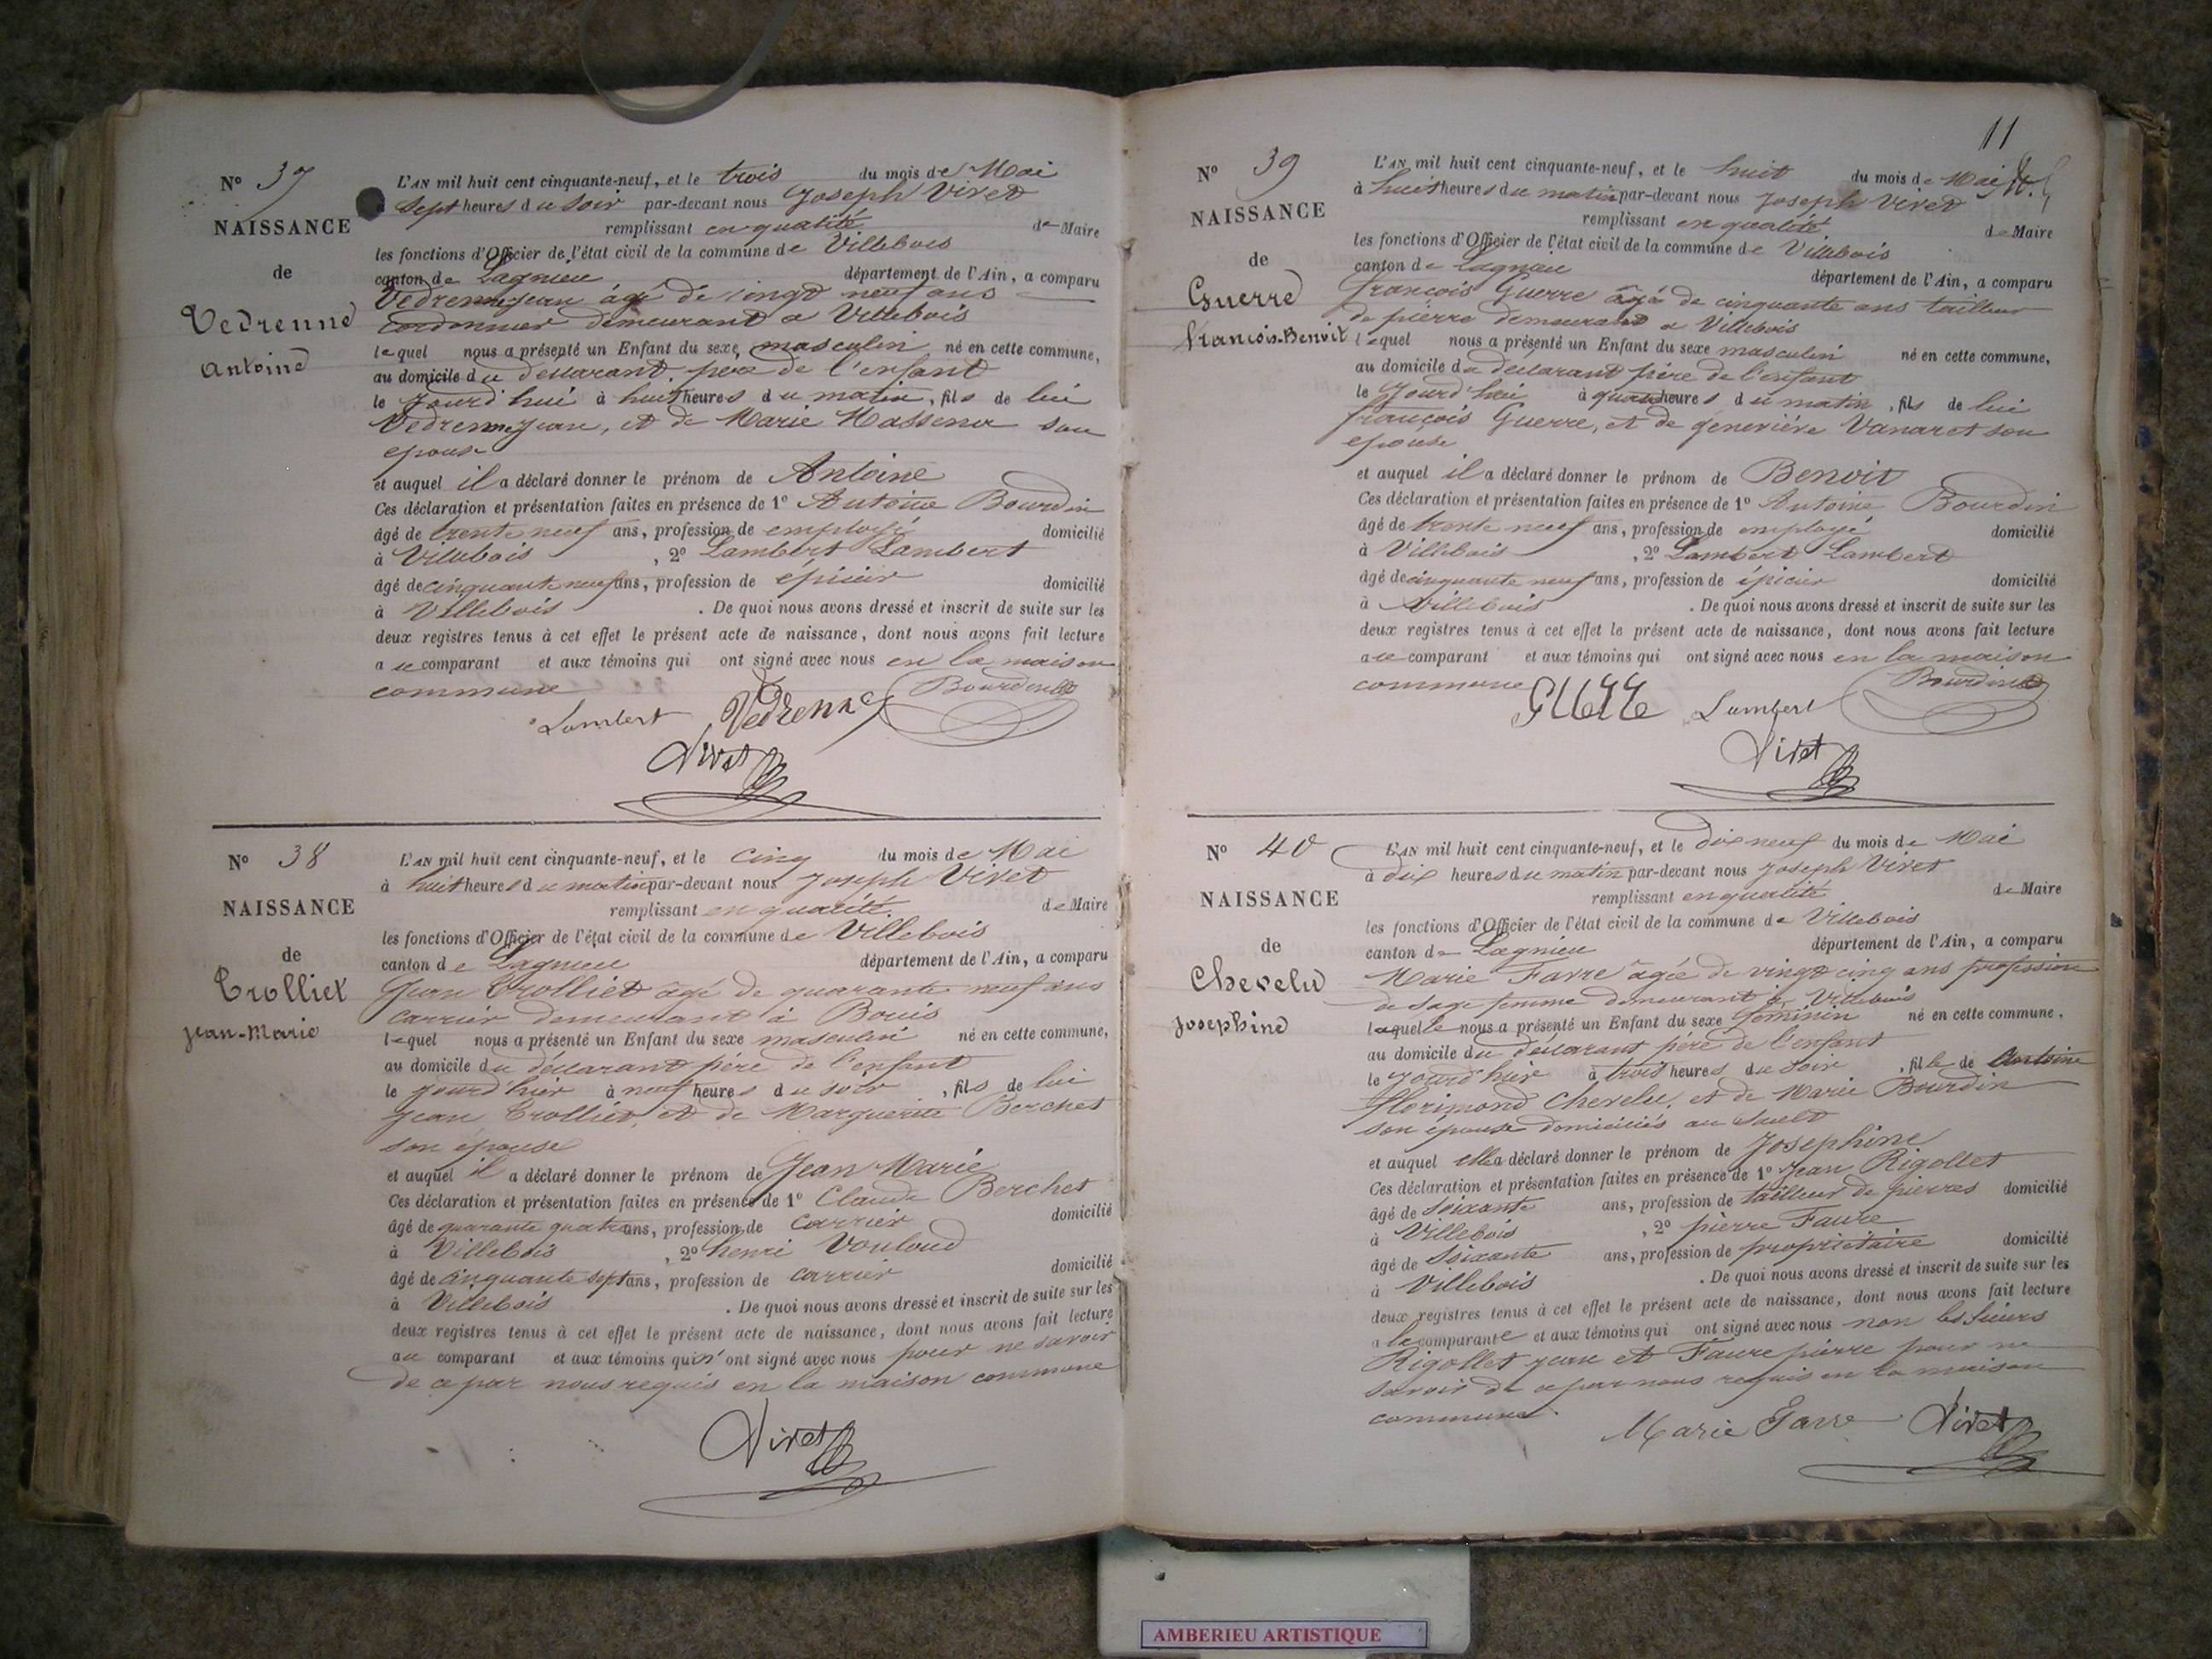 N° 37
NAISSANCE
de
Vedrenne
Antoine
L'AN mil huit cent cinquante-neuf, et le trois du mois de Mai
à sept heures du soir par-devant nous Joseph Vivet
remplissant en qualité de Maire
les fonctions d'Officier de l'état civil de la commune de Villebois
canton de Lagnieu département de l'Ain, a comparu
Vedrenne Jean âgé de vingt neuf ans
cordonnier demeurant a Villebois
lequel nous a présenté un Enfant du sexe masculin né en cette commune,
au domicile du déclarant père de l'enfant
le jourd'hui à huit heures du matin, fils de lui
Vedrenne Jean, et de Marie Massena son
epouse
et auquel il a déclaré donner le prénom de Antoine
Ces déclaration et présentation faites en présence de 1° Antoine Bourdin
âgé de trente neuf ans, profession de employé domicilié
à Villebois, 2° Lambert Lambert
âgé de cinquante neuf ans, profession de épicier domicilié
à Villebois. De quoi nous avons dressé et inscrit de suite sur les
deux registres tenus à cet effet le présent acte de naissance, dont nous avons fait lecture
au comparant et aux témoins qui ont signé avec nous en la maison
commune
Bourdin
Lambert Vedrenne
Vivet
N° 38
NAISSANCE
de
Trolliet
Jean-Marie
L'AN mil huit cent cinquante-neuf, et le cinq du mois de Mai
à huit heures du matin par-devant nous Joseph Vivet
remplissant en qualité de Maire
les fonctions d'Officier de l'état civil de la commune de Villebois
canton de Lagnieu département de l'Ain, a comparu
Jean Trolliet âgé de quarante neuf ans
carrier demeurant à Bouis
lequel nous a présenté un Enfant du sexe masculin né en cette commune,
au domicile du déclarant père de l'enfant
le jourd'hier à neuf heures du soir, fils de lui
Jean Trolliet, et de Marguerite Berchet
son épouse
et auquel il a déclaré donner le prénom de Jean Marie
Ces déclaration et présentation faites en présence de 1° Claude Berchet
âgé de quarante quatre ans, profession de carrier domicilié
à Villebois, 2° henri Vouloud
âgé de cinquante sept ans, profession de carrier domicilié
à Villebois. De quoi nous avons dressé et inscrit de suite sur les
deux registres tenus à cet effet le présent acte de naissance, dont nous avons fait lecture
au comparant et aux témoins qui n'ont signé avec nous pour ne savoir
de ce par nous requis en la maison commune
Vivet
11
N° 39
NAISSANCE
de
Guerre
francois-Benoit
L'AN mil huit cent cinquante-neuf, et le huit du mois de Mai
à huit heures du matin par-devant nous Joseph Vivet
remplissant en qualité de Maire
les fonctions d'Officier de l'état civil de la commune de Villebois
canton de Lagnieu département de l'Ain, a comparu
françois Guerre âgé de cinquante ans tailleur
de pierre demeurant a Villebois
lequel nous a présenté un Enfant du sexe masculin né en cette commune,
au domicile du déclarant père de l'enfant
le jourd'hui à quatre heures du matin, fils de lui
françois Guerre, et de geneviève Vanaret son
epouse
et auquel il a déclaré donner le prénom de Benoit
Ces déclaration et présentation faites en présence de 1° Antoine Bourdin
âgé de trente neuf ans, profession de employé domicilié
à Villebois, 2° Lambert Lambert
âgé de cinquante neuf ans, profession de épicier domicilié
à Villebois. De quoi nous avons dressé et inscrit de suite sur les
deux registres tenus à cet effet le présent acte de naissance, dont nous avons fait lecture
au comparant et aux témoins qui ont signé avec nous en la maison
commune
Bourdin
Lambert
Vivet
N° 40
NAISSANCE
de
Chevelu
Josephine
L'AN mil huit cent cinquante-neuf, et le dix neuf du mois de Mai
à dix heures du matin par-devant nous Joseph Vivet
remplissant en qualité de Maire
les fonctions d'Officier de l'état civil de la commune de Villebois
canton de Lagnieu département de l'Ain, a comparu
Marie Favre âgée de vingt cinq ans profession
de sage femme demeurant à Villebois
laquelle nous a présenté un Enfant du sexe féminin né en cette commune,
au domicile du déclarant père de l'enfant
le jourd'hier à trois heures du soir, fille de Antoine
florimond Chevelu, et de Marie Bourdin
son épouse domiciliés au Sault
et auquel elle a déclaré donner le prénom de Josephine
Ces déclaration et présentation faites en présence de 1° Jean Rigollet
âgé de soixante ans, profession de tailleur de pierres domicilié
à Villebois, 2° pierre Faure
âgé de soixante ans, profession de propriétaire domicilié
à Villebois. De quoi nous avons dressé et inscrit de suite sur les
deux registres tenus à cet effet le présent acte de naissance, dont nous avons fait lecture
a la comparante et aux témoins qui ont signé avec nous non les sieurs
Rigollet jean et Faure pierre pour ne
savoir de ce par nous requis en la maison
commune.
Marie Favre Vivet
AMBERIEU ARTISTIQUE